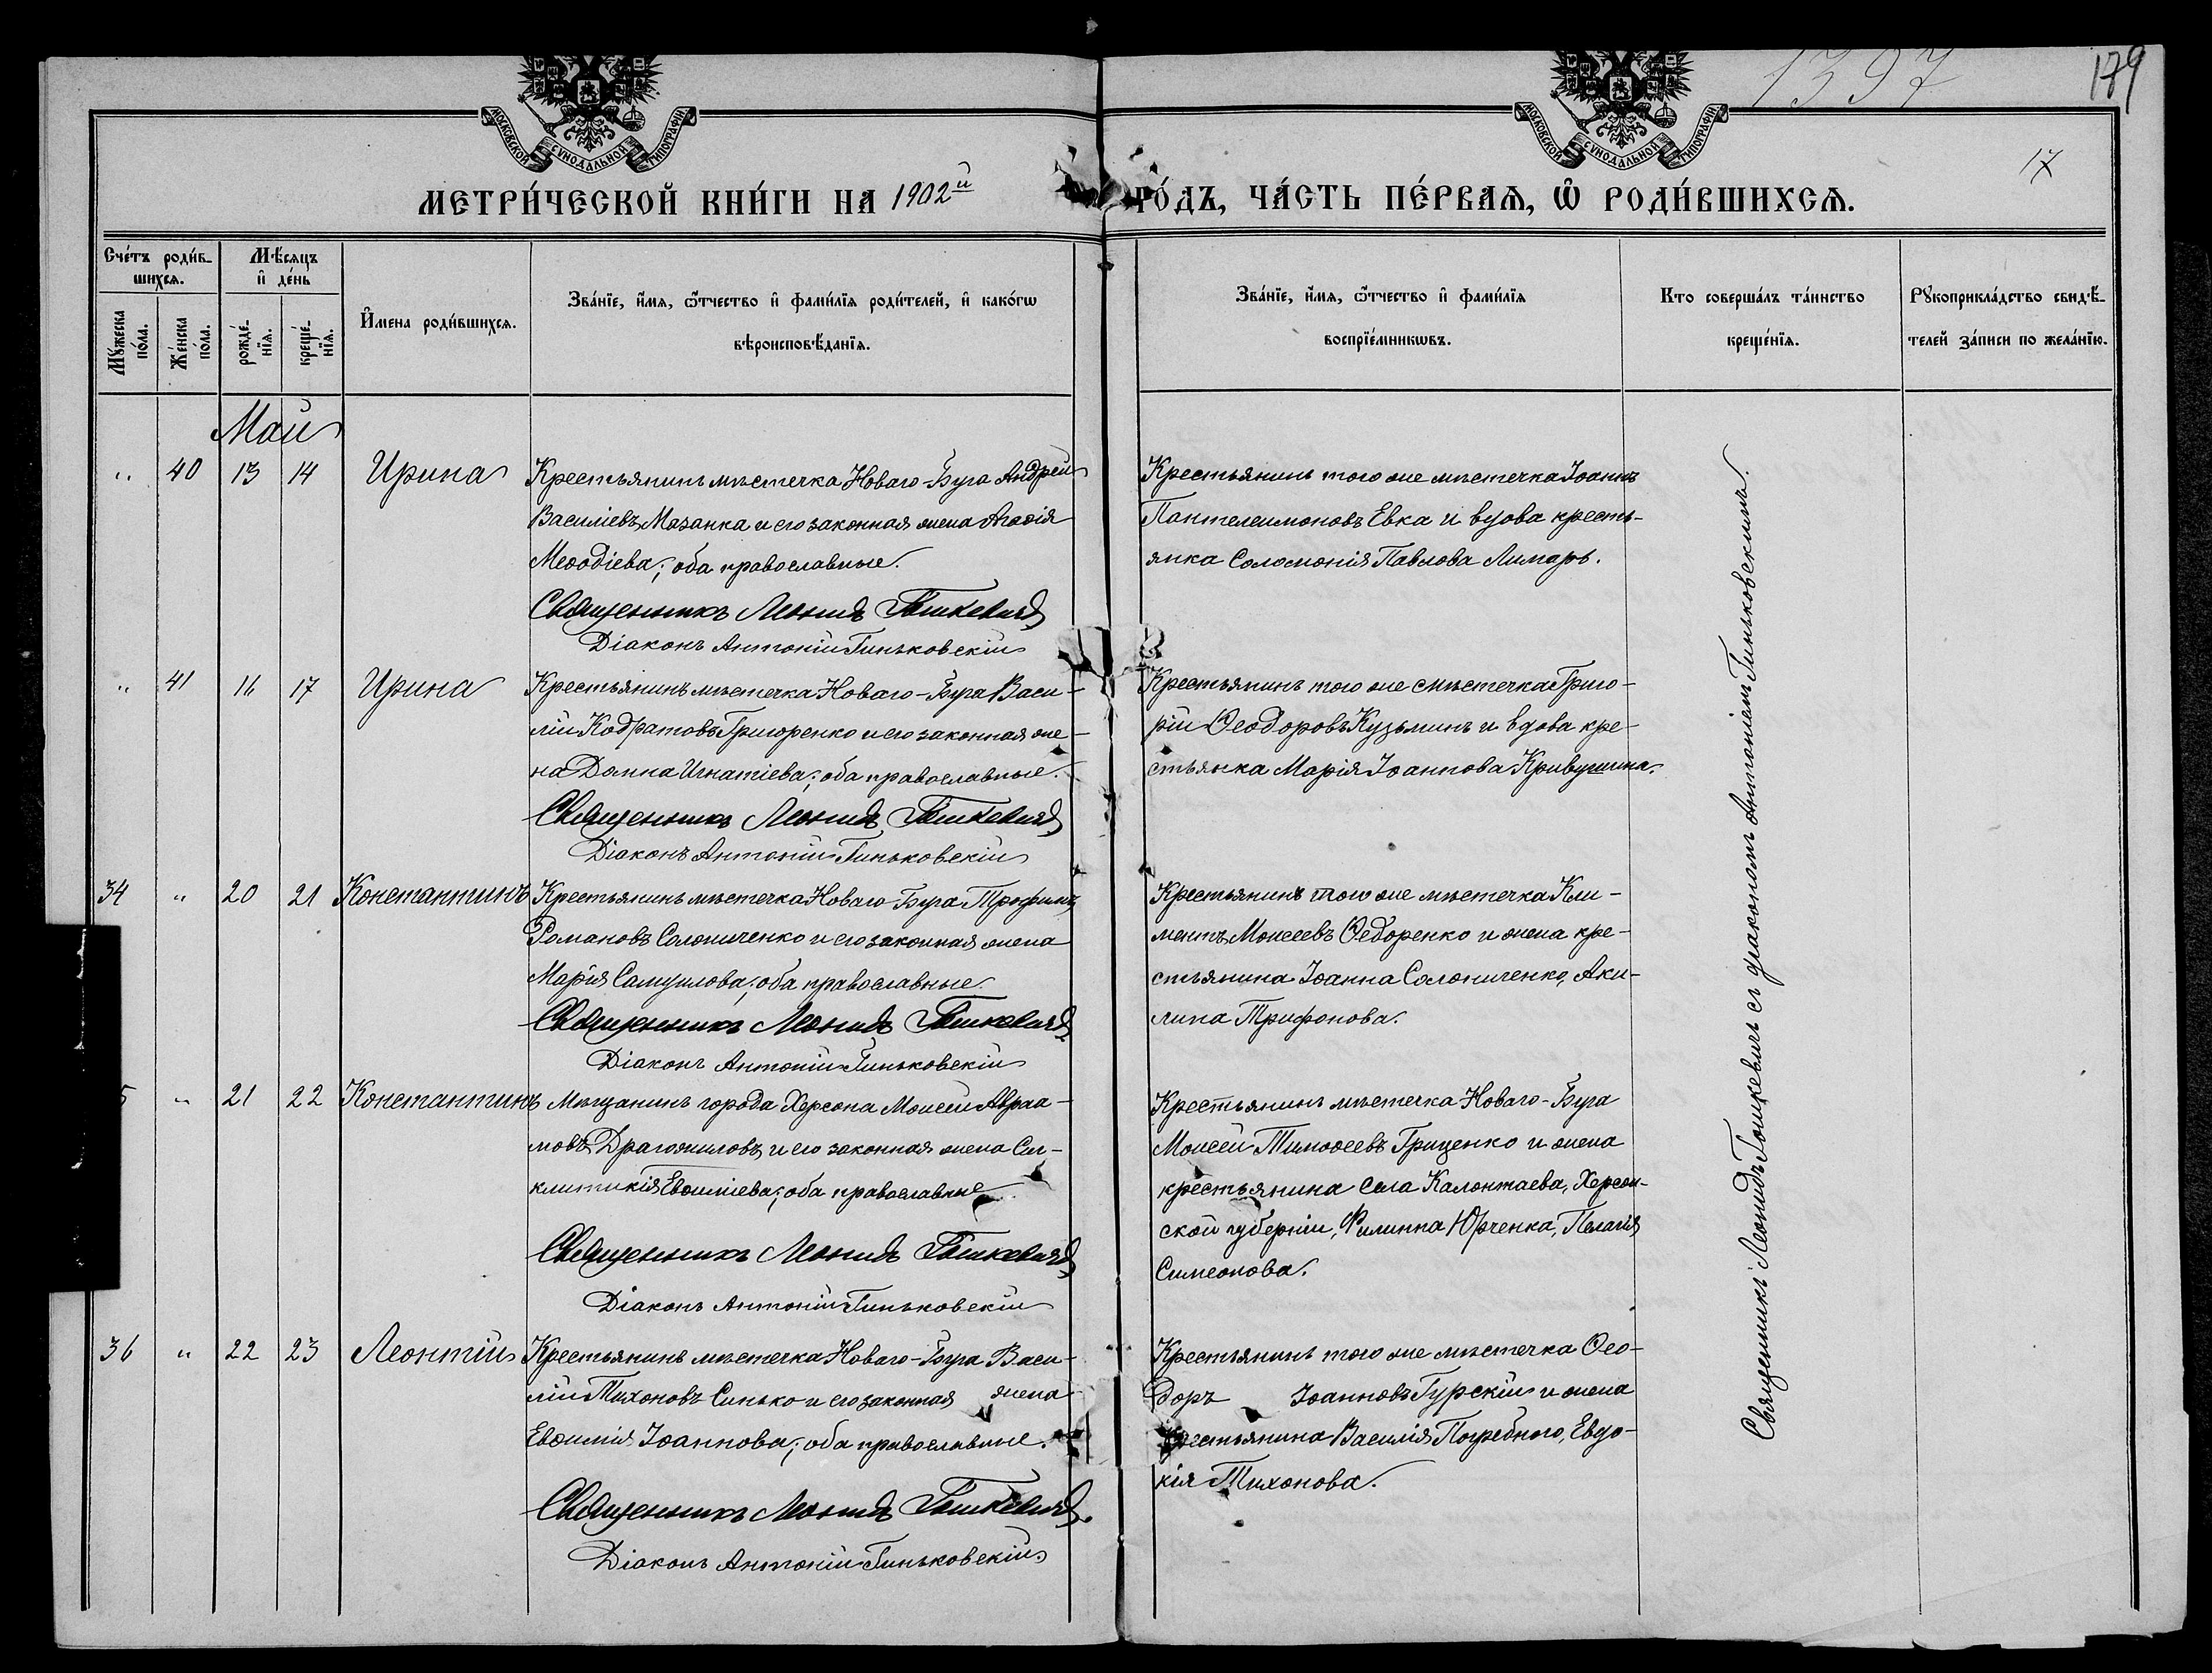 1397
179
17
МОСКОВСКОЙ СѴНОДАЛЬНОЙ ТИПОГРАФІИ
МОСКОВСКОЙ СѴНОДАЛЬНОЙ ТИПОГРАФІИ
МЕТРИ́ЧЕСКОЙ КНИ́ГИ НА 1902й
ГО́ДЪ, ЧА́СТЬ ПЕ́РВАѦ, Ѡ҆ РОДИ́ВШИХСѦ.
Сче́тъ роди́в-
шихсѧ.
Мꙋ́жеска
по́ла.
Же́нска
по́ла.
Мѣ́сѧцъ
и҆ де́нь
рожде́-
нїѧ.
креще́-
нїѧ.
И҆мена роди́вшихсѧ.
Зва́нїе, и҆́мѧ, ѻ҆́тчество и҆ фами́лїѧ роди́телей, и҆ како́гѡ
вѣроисповѣ́данїѧ.
Зва́нїе, и҆́мѧ, ѻ҆́тчество и҆ фами́лїѧ
воспрїе́мникѡвъ.
Кто соверша́лъ та́инство
креще́нїѧ.
Рꙋкоприкла́дство свидѣ́-
телей за́писи по жела́нїю.
Май
" 40 13 14 Ирина Крестьянинъ мѣстечка Новаго-Буга Андрей
Василіевъ Мазанка и его законная жена Агаѳія
Меѳодіева; оба православные.
Священникъ Леонидъ Гошкевичъ
Діаконъ Антоній Гиньковскій
Крестьянинъ того же мѣстечка Іоаннъ
Пантелеимоновъ Евка и вдова кресть-
янка Соломонія Павлова Лимарь.
" 41 16 17 Ирина Крестьянинъ мѣстечка Новаго-Буга Васи-
лій Кодратовъ Григоренко и его законная же-
на Домна Игнатіева; оба православные.
Священникъ Леонидъ Гошкевичъ
Діаконъ Антоній Гиньковскій
Крестьянинъ того же мѣстечка Григо-
рій Ѳеодоровъ Кузьминъ и вдова кре-
стьянка Марія Іоаннова Кривушина.
34 " 20 21 Константинъ Крестьянинъ мѣстечка Новаго-Буга Трофимъ
Романовъ Солониченко и его законная жена
Марія Самуилова; оба православные.
Священникъ Леонидъ Гошкевичъ
Діаконъ Антоній Гиньковскій
Крестьянинъ того же мѣстечка Кли-
ментъ Моисеевъ Ѳедоренко и жена кре-
стьянина Іоанна Солониченко, Аки-
лина Трифонова.
5 " 21 22 Константинъ Мѣщанинъ города Херсона Моисей Авраа-
мовъ Драгожиловъ и его законная жена Син-
клитикія Евѳиміева; оба православные
Священникъ Леонидъ Гошкевичъ
Діаконъ Антоній Гиньковскій
Крестьянинъ мѣстечка Новаго-Буга
Моисей Тимоѳеевъ Гриценко и жена
крестьянина села Калонтаева, Херсон-
ской губерніи, Филиппа Юрченка, Пелагія
Симеонова.
36 " 22 23 Леонтій Крестьянинъ мѣстечка Новаго-Буга Васи-
лій Тихоновъ Синько и его законная жена
Евѳимія Іоаннова; оба православные.
Священникъ Леонидъ Гошкевичъ.
Діаконъ Антоній Гиньковскій
Крестьянинъ того же мѣстечка Ѳео-
доръ Іоанновъ Гурскій и жена
крестьянина Василія Погребного, Евдо-
кія Тихонова.
Священникъ Леонидъ Гошкевичъ съ діакономъ Антоніемъ Гиньковскимъ.